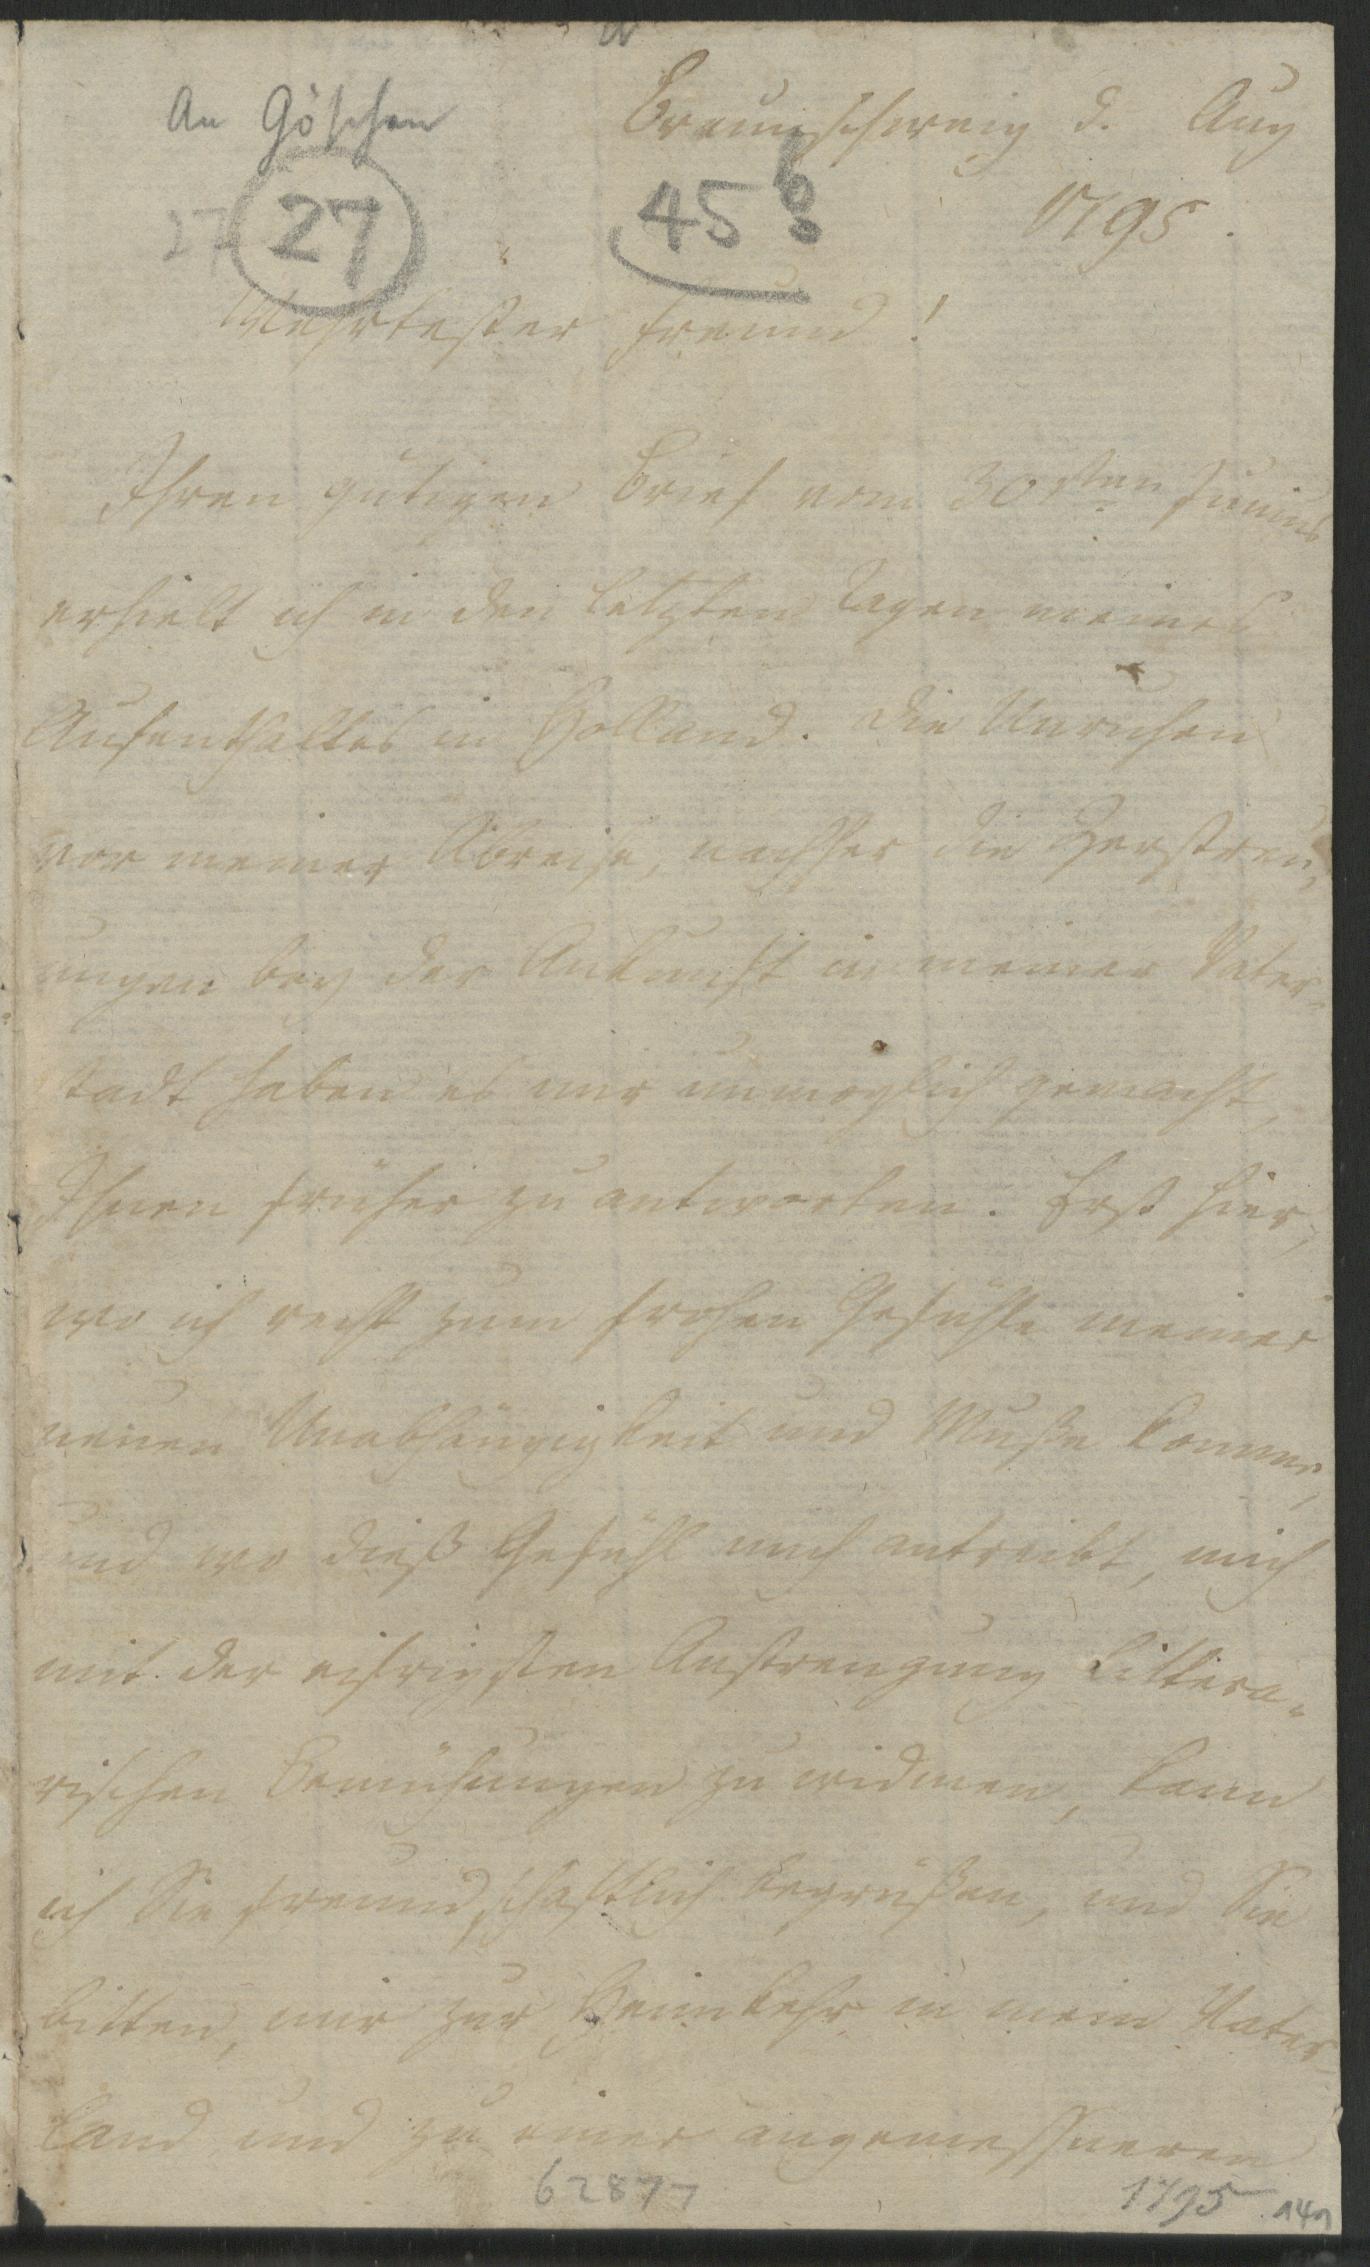 An Göschen
Braunschweig d. Aug
1795.
27 27
45
Wehrtester Freund!
Ihren gütigen Brief vom 30sten Junius
erhielt ich in den letzten Tagen meines
Aufenthaltes in Holland. Die Unruhen
vor meiner Abreise, nachher die Zerstreu,
ungen bey der Ankunft in meiner Vater-
stadt haben es mir unmöglich gemacht,
Ihnen früher zu antworten. Erst hier,
wo ich recht zum frohen Gefühle meiner
neuen Unabhängigkeit und Muße komme,
und wo dieß Gefühl mich antreibt, mich
mit der eifrigsten Anstrengung littera-
rischen Bemühungen zu widmen, kann
ich Sie freundschaftlich begrüßen, und Sie
bitten, mir zur Heimkehr in mein Vater-
land und zu einer angemessneren
62877
1795
141